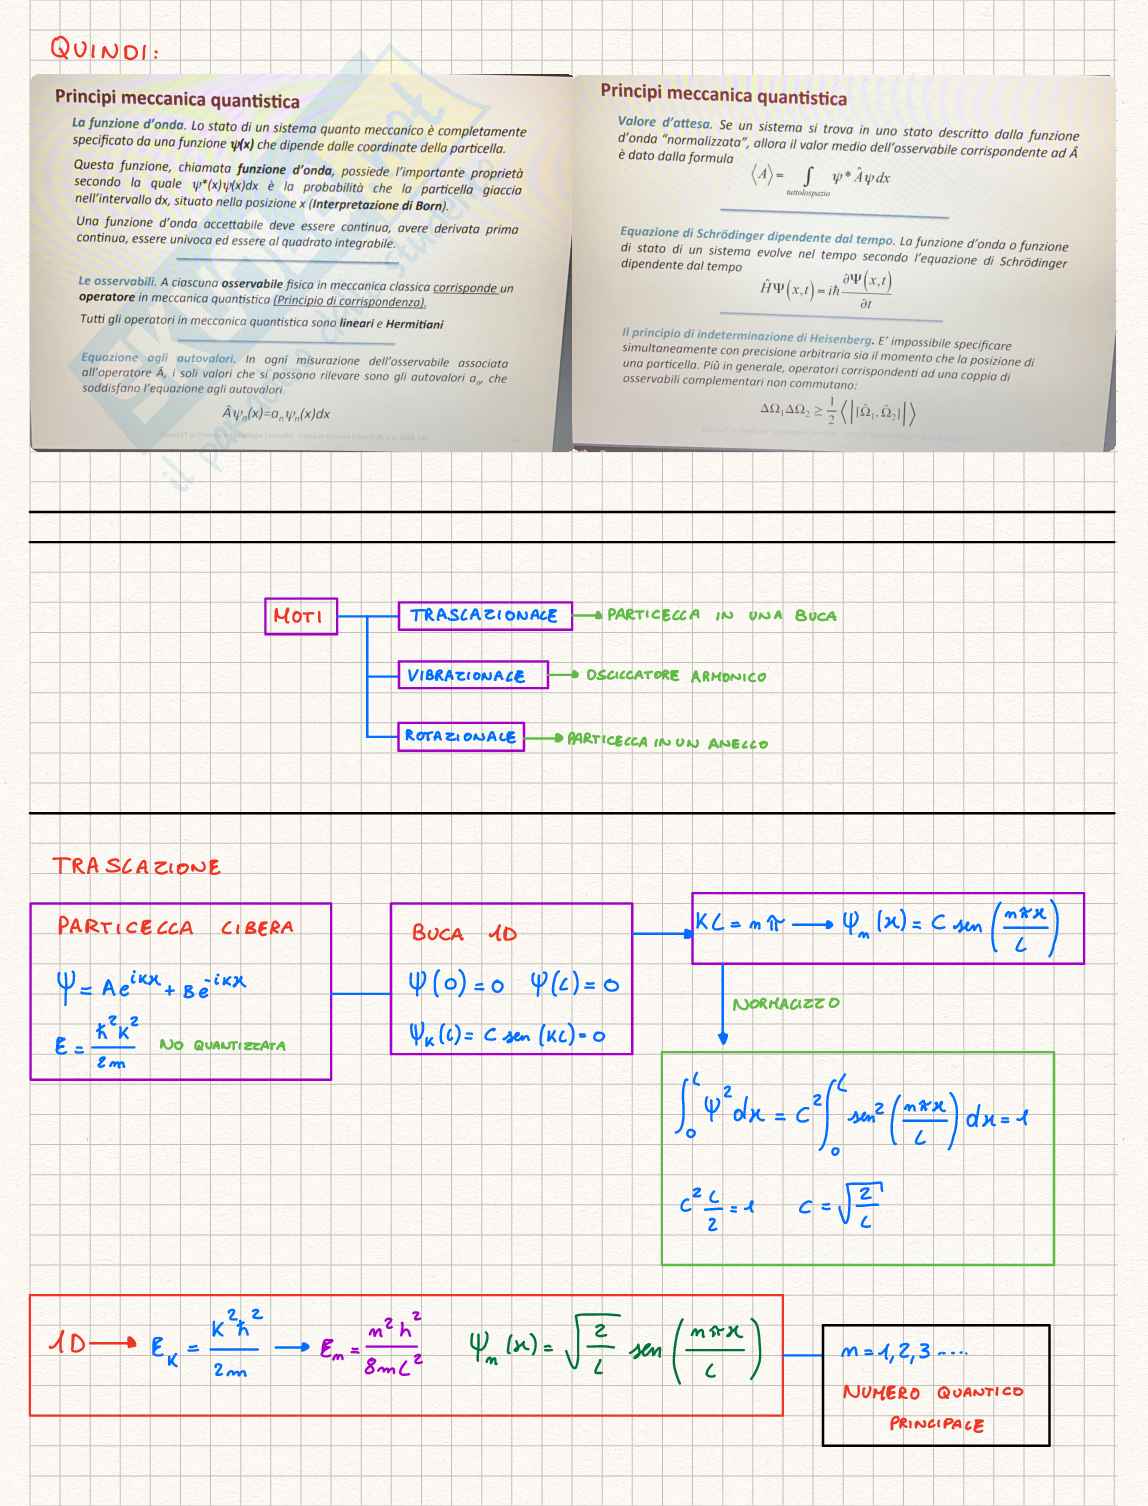 QUINDI:
Principi meccanica quantistica
La funzione d'onda. Lo stato di un sistema quanto meccanico è completamente
specificato da una funzione ψ(x) che dipende dalle coordinate della particella.
Questa funzione, chiamata funzione d'onda, possiede l'importante proprietà
secondo la quale ψ*(x)ψ(x)dx è la probabilità che la particella giaccia
nell'intervallo dx, situato nella posizione x (Interpretazione di Born).
Una funzione d'onda accettabile deve essere continua, avere derivata prima
continua, essere univoca ed essere al quadrato integrabile.
Le osservabili. A ciascuna osservabile fisica in meccanica classica corrisponde un
operatore in meccanica quantistica (Principio di corrispondenza).
Tutti gli operatori in meccanica quantistica sono lineari e Hermitiani
Equazione agli autovalori. In ogni misurazione dell'osservabile associata
all'operatore Â, i soli valori che si possono rilevare sono gli autovalori aₙ, che
soddisfano l'equazione agli autovalori
Âψₙ(x)=aₙψₙ(x)dx
Principi meccanica quantistica
Valore d'attesa. Se un sistema si trova in uno stato descritto dalla funzione
d'onda "normalizzata", allora il valor medio dell'osservabile corrispondente ad Â
è dato dalla formula
⟨A⟩ = ∫ ψ * Âψ dx
tuttolospazio
Equazione di Schrödinger dipendente dal tempo. La funzione d'onda o funzione
di stato di un sistema evolve nel tempo secondo l'equazione di Schrödinger
dipendente dal tempo
ĤΨ(x,t) = iħ ∂Ψ(x,t)/∂t
Il principio di indeterminazione di Heisenberg. E' impossibile specificare
simultaneamente con precisione arbitraria sia il momento che la posizione di
una particella. Più in generale, operatori corrispondenti ad una coppia di
osservabili complementari non commutano:
ΔΩ₁ΔΩ₂ ≥ 1/2 ⟨|[Ω̂₁,Ω̂₂]|⟩
MOTI
TRASLAZIONALE → PARTICELLA IN UNA BUCA
VIBRAZIONALE → OSCILLATORE ARMONICO
ROTAZIONALE → PARTICELLA IN UN ANELLO
TRASLAZIONE
PARTICELLA LIBERA
Ψ = Ae^{ikx} + Be^{-ikx}
E = ħ²K²/2m NO QUANTIZZATA
BUCA 1D
Ψ(0) = 0 Ψ(L) = 0
Ψ_K(L) = C sen (KL) = 0
KL = nπ → Ψₙ(x) = C sen (nπx/L)
NORMALIZZO
∫₀^L Ψ² dx = C² ∫₀^L sen² (nπx/L) dx = 1
C² L/2 = 1 C = √(2/L)
1D → E_K = K²ħ²/2m → Eₙ = n²h²/8mL² Ψₙ(x) = √(2/L) sen (nπx/L)
n = 1, 2, 3 ....
NUMERO QUANTICO
PRINCIPALE